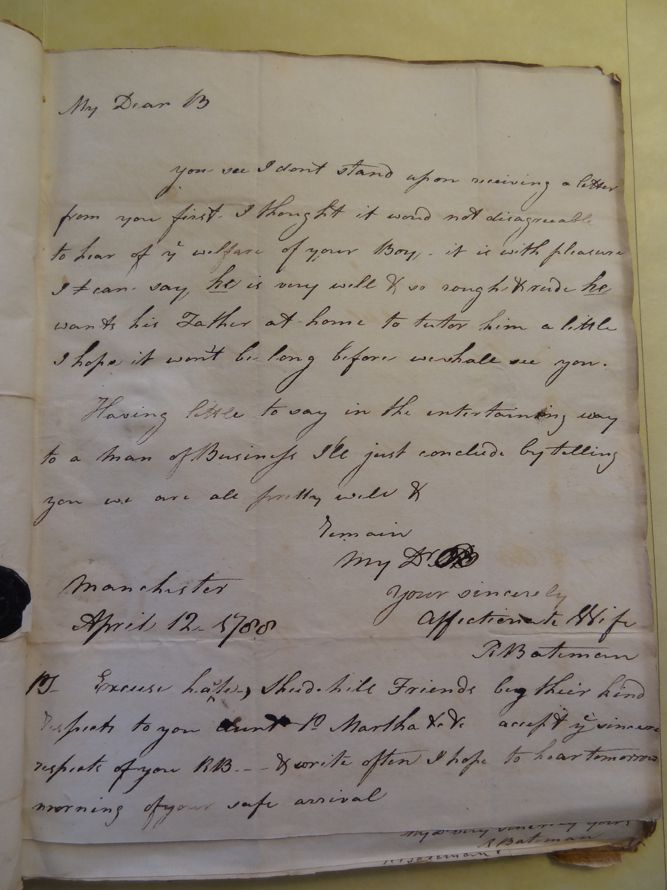 My Dear B
you see I dont stand upon receiving a letter
from you first. I thought it woud not disagreeable
to hear of yͤ welfare of your Boy. it is with pleasure
I can say he is very well & so rough & rude he
wants his Father at home to tutor him a little
I hope it won't be long before we shall see you.
Having little to say in the entertaining way
to a Man of Business I'll just conclude by telling
you we are all pretty well &
remain
My Dr B
Your sincerely
Affectionate Wife
R Bateman
Manchester
April 12 1788
PS Excuse haste, Shudehill Friends beg their kind
respects to you aunt Martha && accept yͤ sincere
respects of you RB -- & write often I hope to hear tomorrow
morning of your safe arrival
very sincerely yours
Bateman